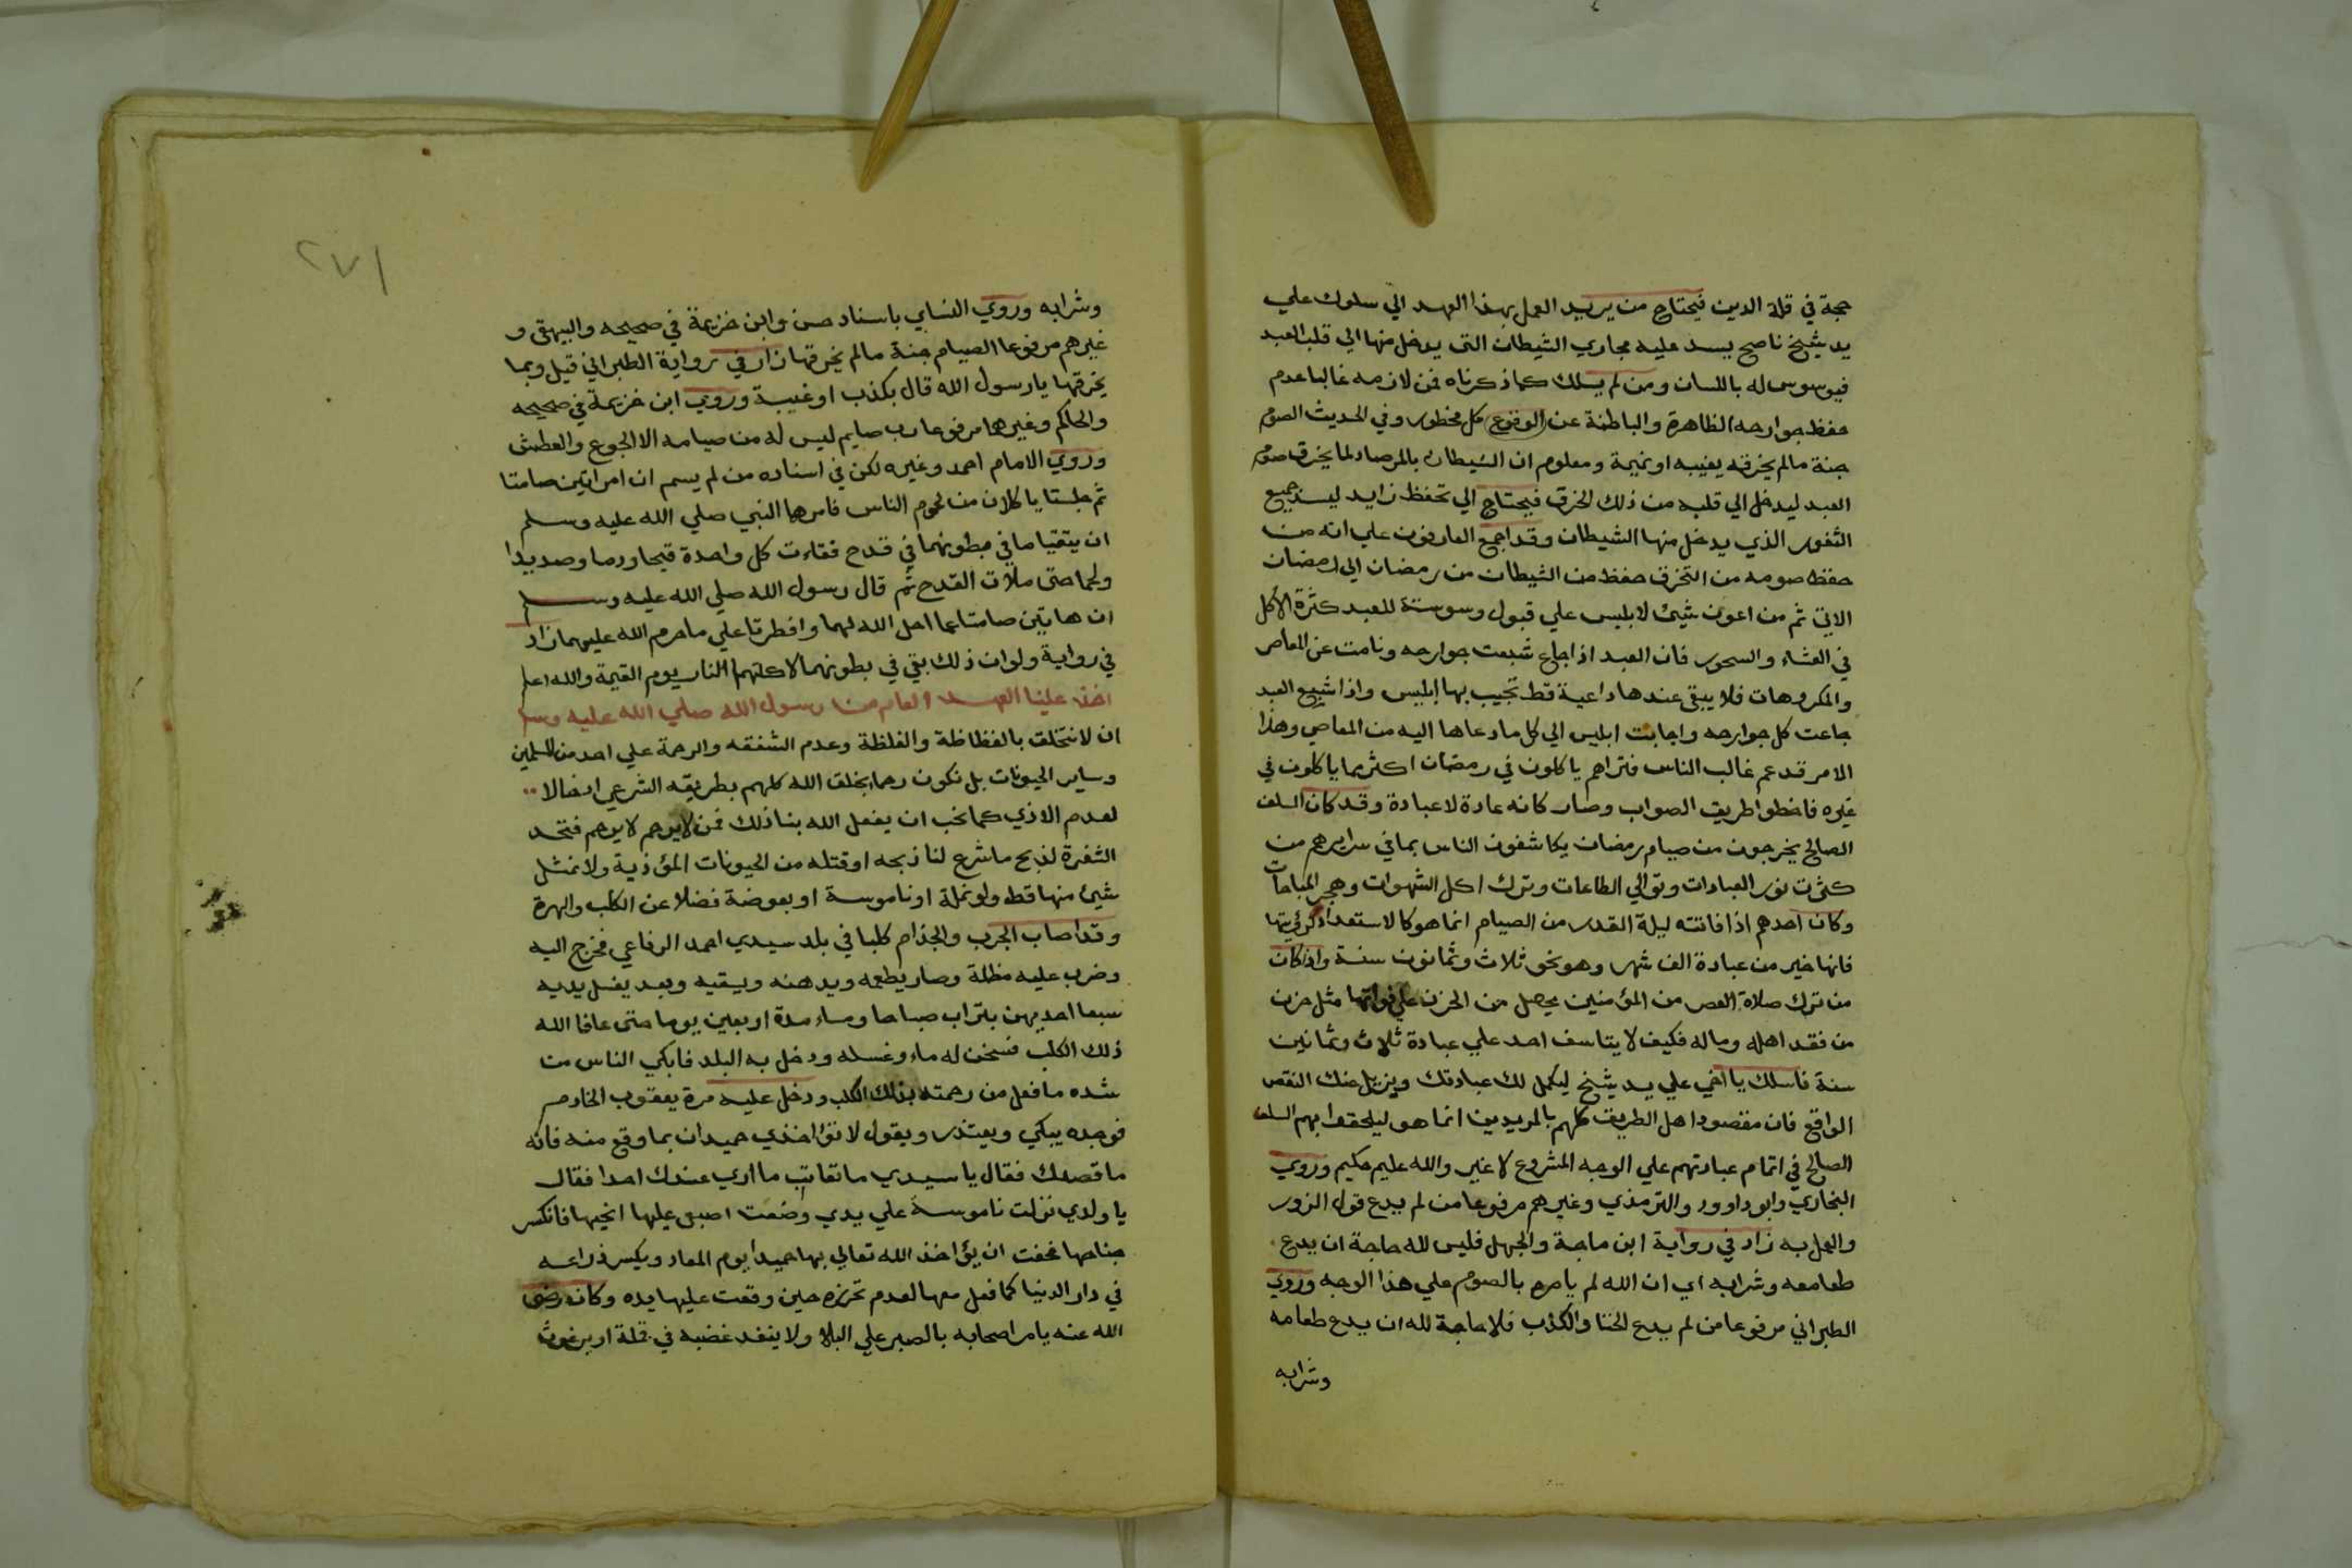 حجة في قلة الدين فيحتاج من يريد العمل بهذا العهد الي سلوك علي
يد شيخ ناصح يسد عليه مجاري الشيطان التي يدخل منها الي قلب العبد
فيوسوس له باللسان ومن لم يسلك كما ذكرناه فمن لازمه غالبا عدم
حفظ جوارحه الظاهرة والباطنة عن الوقوع كل محظور وفي الحديث الصوم
جنة مالم يخرقه بغيبه او نميمة ومعلوم ان الشيطان بالمرصاد لما يخرق صوم
العبد ليدخل الي قلبه من ذلك الخرق فيحتاج الي تحفظ زايد ليسد جميع
الثغور الذي يدخل منها الشيطان وقد اجمع العارفون علي انه من
حفظ صومه من التخرق حفظ من الشيطان من رمضان الي رمضان
الاتي ثم من اعون شيئ لابليس علي قبول وسوسته للعبد كثرة الاكل
في العشاء والسحور فان العبد اذا جاع شبعت جوارحه ونامت عن المعاصي
والمكروهات فلا يبقي عندها داعية قط تجيب بها ابليس واذا شبع العبد
جاعت كل جوارحه واجابت ابليس الي كل ما دعاها اليه من المعاصي وهذا
الامر قد عم غالب الناس فتراهم ياكلون في رمضان اكثر مما ياكلون في
غيره فاخطوا طريق الصواب وصار كانه عادة لا عبادة وقد كان السلف
الصالح يخرجون من صيام رمضان يكاشفون الناس بما في سرايرهم من
كثرت نور العبادات وتوالي الطاعات وترك اكل الشهوات وهجر المباحات
وكان احدهم اذا فاتته ليلة القدر من الصيام انما هو كالاستعداد لرؤيتها
فانها خير من عبادة الف شهر وهو نحو ثلاث وثمانون سنة واذا كان
من ترك صلاة العصر من المؤمنين يحصل من الحزن علي فواتها مثل حزن
من فقد اهله وماله فكيف لا يتاسف احد علي عبادة ثلاث وثمانين
سنة فاسلك يا اخي علي يد شيخ ليكمل لك عبادتك ويزيل عنك النقص
الواقع فان مقصود اهل الطريق كلهم بالمريدين انما هو ليلحقوا بهم السلف
الصالح في اتمام عبادتهم علي الوجه المشروع لا غير والله عليم حكيم وروي
البخاري وابو داوود والترمذي وغيرهم مرفوعا من لم يدع قول الزور
والعمل به زاد في رواية ابن ماجة والجهل فليس لله حاجة ان يدع
طعامه وشرابه اي ان الله لم يامره بالصوم علي هذا الوجه وروي
الطبراني مرفوعا من لم يدع الخنا والكذب فلا حاجة لله ان يدع طعامه
وشرابه
٢٧١
وشرابه وروي النسايي باسناد حسن وابن خزيمة في صحيحه والبيهقي و
غيرهم مرفوعا الصيام جنة مالم يخرقها زاد في رواية الطبراني قيل وبما
يخرقها يا رسول الله قال بكذب او غيبة وروي ابن خزيمة في صحيحه
والحاكم وغيرهما مرفوعا رب صايم ليس له من صيامه الا الجوع والعطش
وروي الامام احمد وغيره لكن في اسناده من لم يسم ان امراتين صامتا
ثم جلستا ياكلان من لحوم الناس فامرهما النبي صلي الله عليه وسلم
ان يتقيا ما في بطونهما في قدح فقاءت كل واحدة قيحا ودما وصديدا
ولحما حتي ملات القدح ثم قال رسول الله صلي الله عليه وسلم
ان هاتين صامتا عما احل الله لهما وافطرتا علي ما حرم الله عليهما زاد
في رواية ولو ان ذلك بقي في بطونهما لاكلتهما النار يوم القيمة والله اعلم
اخذ علينا العهد العام من رسول الله صلي الله عليه وسلم
ان لا نتخلق بالفظاظة والغلظة وعدم الشفقه والرحمة علي احد من المسلمين
وساير الحيونات بل نكون رحماء بخلق الله كلهم بطريقه الشرعي
لعدم الاذي كما نحب ان يفعل الله بنا ذلك فمن لا يرحم لا يرحم فنحد
الشفرة لذبح ما شرع لنا ذبحه او قتله من الحيونات المؤذية ولا نمثل
شيئ منها قط ولو نملة او ناموسة او بعوضة فضلا عن الكلب والهرة
وقد اصاب الجرب والجذام كلبا في بلد سيدي احمد الرفاعي فخرج اليه
وضرب عليه مظلة وصار يطعمه ويدهنه ويسقيه وبعد يغسل يديه
سبعا احديهن بتراب صباحا ومساء مدة اربعين يوما حتي عافا الله
ذلك الكلب فسخن له ماء وغسله ودخل به البلد فابكي الناس من
شده ما فعل من رحمته بذلك الكلب ودخل عليه مرة يعقوب الخادم
فوجده يبكي ويعتذر ويقول لا تؤاخذي حميدان بما وقع منه فانه
ما قصدك فقال يا سيدي ما تعاتب ما اري عندك احدا فقال
يا ولدي نزلت ناموسة علي يدي وضعت اصبعي عليها انحيها فانكسر
جناحها فخفت ان يؤاخذ الله تعالي بها حميدا يوم المعاد ويكسر ذراعه
في دار الدنيا كما فعل معها لعدم تحرزه حين وقعت عليها يده وكان رضي
الله عنه يامر اصحابه بالصبر علي البلا ولا ينفد غضبه في قملة او برغوث